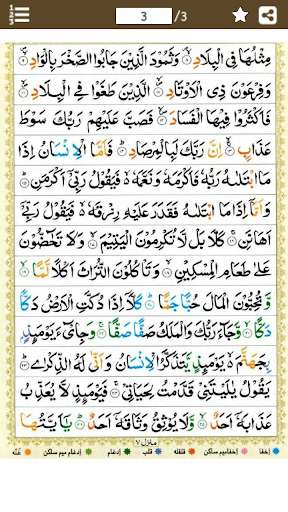 3 /3
مِثْلُهَا فِي الْبِلَادِ ۝٨ وَثَمُودَ الَّذِيْنَ جَابُوا الصَّخْرَ بِالْوَادِ ۝٩
وَفِرْعَوْنَ ذِي الْاَوْتَادِ ۝١٠ الَّذِيْنَ طَغَوْا فِي الْبِلَادِ ۝١١
فَاَكْثَرُوْا فِيْهَا الْفَسَادَ ۝١٢ فَصَبَّ عَلَيْهِمْ رَبُّكَ سَوْطَ
عَذَابٍ ۝١٣ اِنَّ رَبَّكَ لَبِالْمِرْصَادِ ۝١٤ فَاَمَّا الْاِنْسَانُ اِذَا
مَا ابْتَلٰىهُ رَبُّهٗ فَاَكْرَمَهٗ وَنَعَّمَهٗ فَيَقُوْلُ رَبِّيْٓ اَكْرَمَنِ ۝١٥
وَاَمَّآ اِذَا مَا ابْتَلٰىهُ فَقَدَرَ عَلَيْهِ رِزْقَهٗ فَيَقُوْلُ رَبِّيْٓ
اَهَانَنِ ۝١٦ كَلَّا بَلْ لَّا تُكْرِمُوْنَ الْيَتِيْمَ ۝١٧ وَلَا تَحٰٓضُّوْنَ
عَلٰى طَعَامِ الْمِسْكِيْنِ ۝١٨ وَتَاْكُلُوْنَ التُّرَاثَ اَكْلًا لَّمًّا ۝١٩
وَّتُحِبُّوْنَ الْمَالَ حُبًّا جَمًّا ۝٢٠ كَلَّآ اِذَا دُكَّتِ الْاَرْضُ دَكًّا
دَكًّا ۝٢١ وَّجَآءَ رَبُّكَ وَالْمَلَكُ صَفًّا صَفًّا ۝٢٢ وَجِايْٓءَ يَوْمَئِذٍ
بِجَهَنَّمَ يَوْمَئِذٍ يَّتَذَكَّرُ الْاِنْسَانُ وَاَنّٰى لَهُ الذِّكْرٰى ۝٢٣
يَقُوْلُ يٰلَيْتَنِيْ قَدَّمْتُ لِحَيَاتِيْ ۝٢٤ فَيَوْمَئِذٍ لَّا يُعَذِّبُ
عَذَابَهٗٓ اَحَدٌ ۝٢٥ وَّلَا يُوْثِقُ وَثَاقَهٗٓ اَحَدٌ ۝٢٦ يٰٓاَيَّتُهَا
منزل ٧
إخفا إخفا ميم ساكن قلقله قلب إدغام إدغام ميم ساكن غُنّه